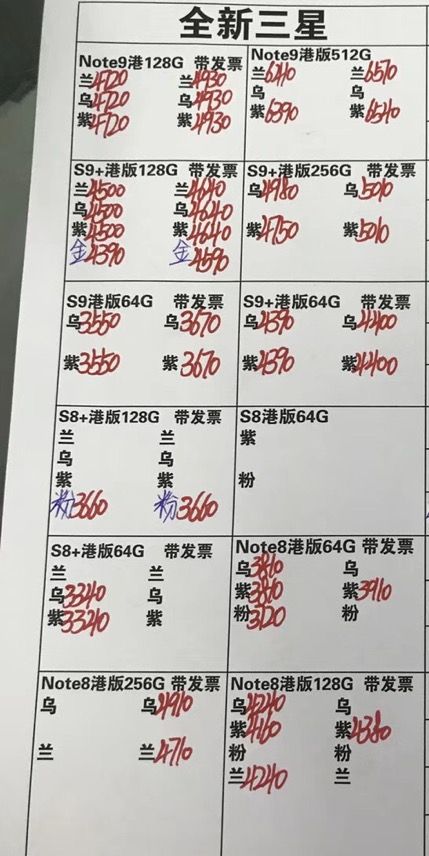 全新三星
Note9港128G 带发票
兰4720 兰4930
乌4720 乌4930
紫4720 紫4930
Note9港版512G
兰6240 兰6570
乌 乌
紫6390 紫6540
S9+港版128G 带发票
兰4500 兰4640
乌4500 乌4640
紫4500 紫4640
金4390 金4590
S9+港版256G 带发票
乌4980 乌5010
紫4750 紫5010
S9港版64G 带发票
乌3550 乌3670
紫3550 紫3670
S9+港版64G 带发票
乌4390 乌4400
紫4390 紫4400
S8+港版128G 带发票
兰 兰
乌 乌
紫 紫
粉3660 粉3660
S8港版64G
紫
粉
S8+港版64G 带发票
兰 兰
乌3340 乌
紫3340 紫
Note8港版64G 带发票
乌3860 乌
紫3860 紫3910
粉3720 粉
Note8港版256G 带发票
乌 乌4910
兰 兰4710
Note8港版128G 带发票
乌4240 乌
紫4160 紫4380
粉 粉
兰4240 兰